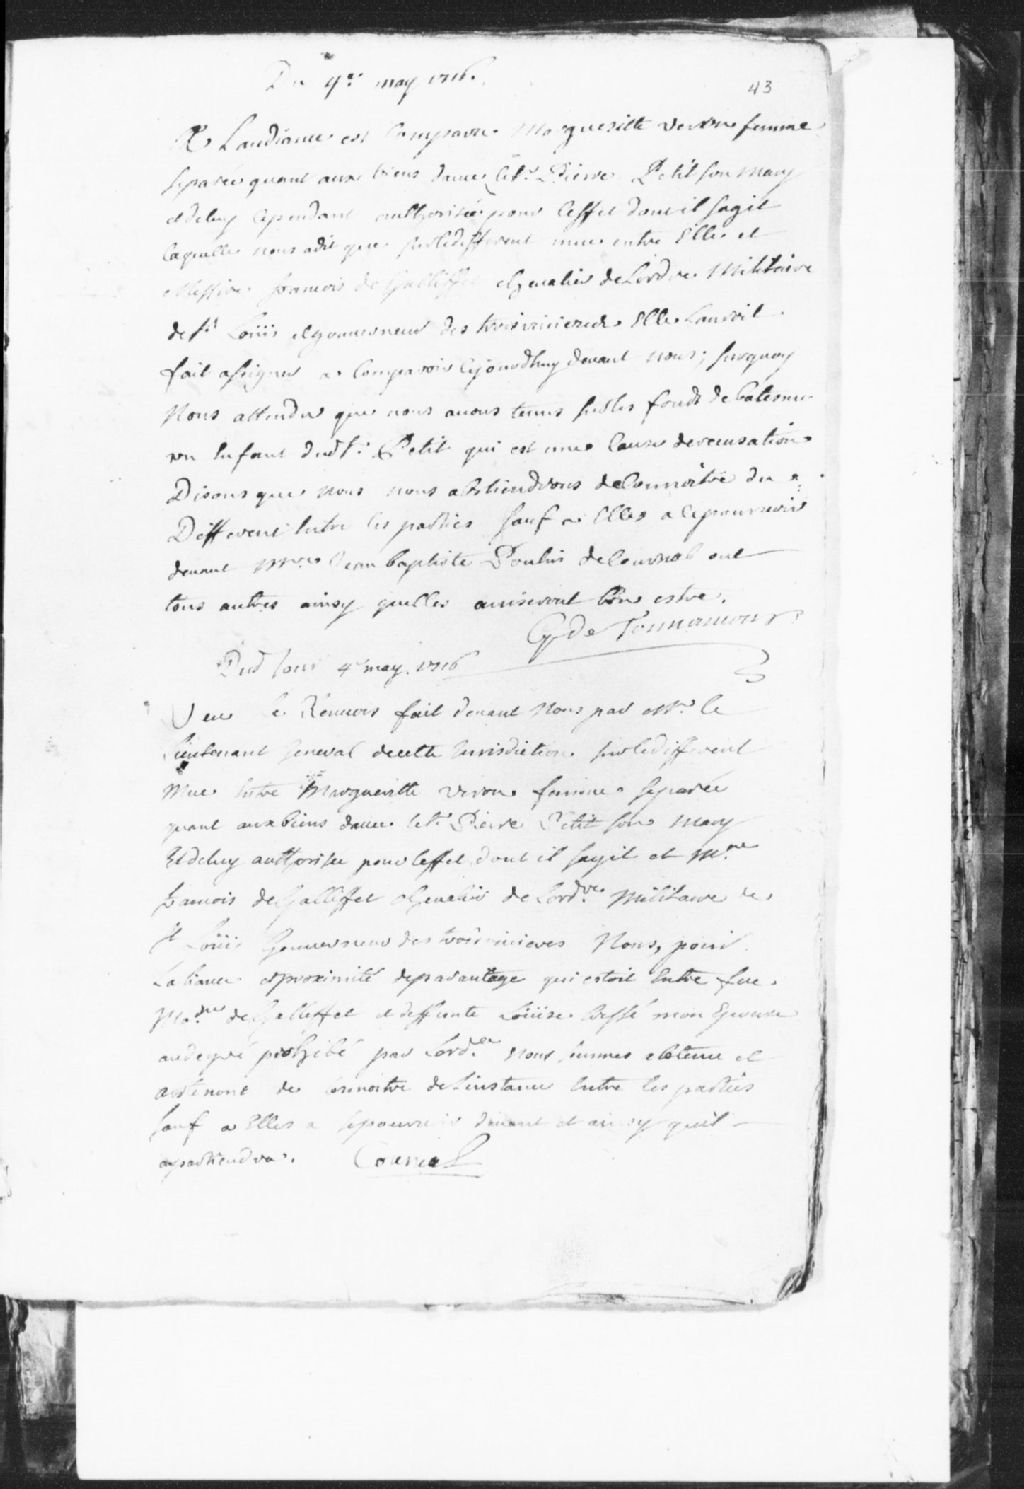 Du 4e. may 1716.
43
A Laudiance est Comparue Margueritte veron femme
separée quant aux biens dauec le Sr. Pierre Petit son mary
et deluy Cependant authorisée pour leffet dont il sagit
laquelle nous adit que sur le different mue entre Elle et
Messire francois de Galliffet cheualier de Lordre Militaire
de St Loüis et gouuerneur des trois riuieres Elle Lauroit
fait assigner a Comparoir cejourdhuy deuant nous; surquoy
Nous attendu que nous auons tenus sur les fonds de batesme
un Enfant dudt. Petit qui est une Cause de recusation
Disons que nous nous abstiendrons de Connoitre du
Different Entre les parties sauf a Elles a se pouruoir
deuant Mre Jean baptiste Poulin de Courval ou
tous autres ainsy quelles auiseront bon estre.
G de Tonnancour
Dud Jour 4e may. 1716
Veu le Renuoy fait deuant Nous par Mr. le
Lieutenant General de cette Jurisdiction sur le differend
Mue Entre Margueritte veron femme separée
quant aux biens dauec le Sr. Pierre Petit son Mary
Et deluy authorisée pour leffet dont il sagit et Mre
francois de Galliffet cheualier de Lordre Militaire de
St Loüis Gouuerneur des trois riuieres Nous, pour
Laliance et proximité de parantage qui estoit Entre feue
Made de Galliffet et deffunte Loüise Cressé mon Epouse
au degré prohibé par Lordce Nous sommes abstenu et
abstenons de connoitre de Linstance Entre les parties
sauf a Elles a se pouruoir deuant et ainsy quil
apartiendra. Courval